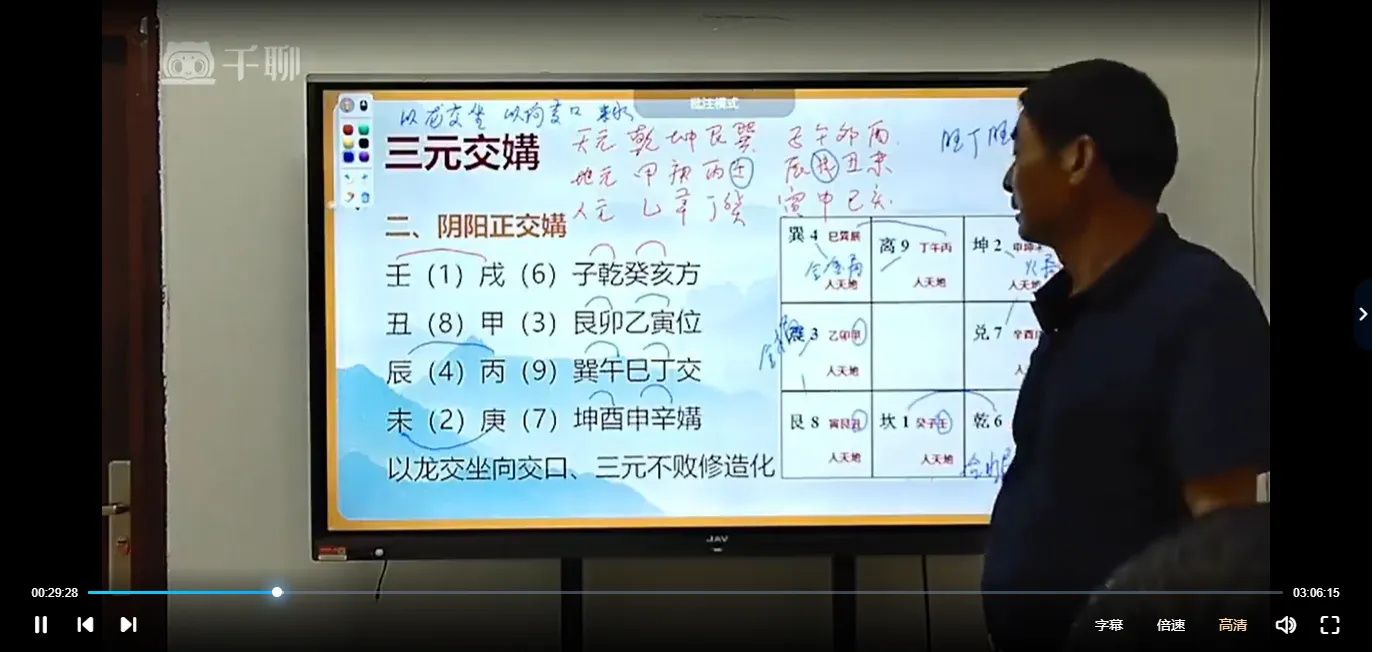 千聊
批注模式
以龙交坐 以向交口 来水
三元交媾
天元 乾坤艮巽 子午卯酉
地元 甲庚丙壬 辰戌丑未
人元 乙辛丁癸 寅申巳亥
旺丁旺
二、阴阳正交媾
壬（1）戌（6）子乾癸亥方
丑（8）甲（3）艮卯乙寅位
辰（4）丙（9）巽午巳丁交
未（2）庚（7）坤酉申辛媾
以龙交坐向交口、三元不败修造化
巽4 巳巽辰
人天地
离9 丁午丙
人天地
坤2 申坤
人天地
震3 乙卯甲
人天地
兑7 辛酉
人
艮8 寅艮丑
人天地
坎1 癸子壬
人天地
乾6
JAV
00:29:28
03:06:15
字幕
倍速
高清